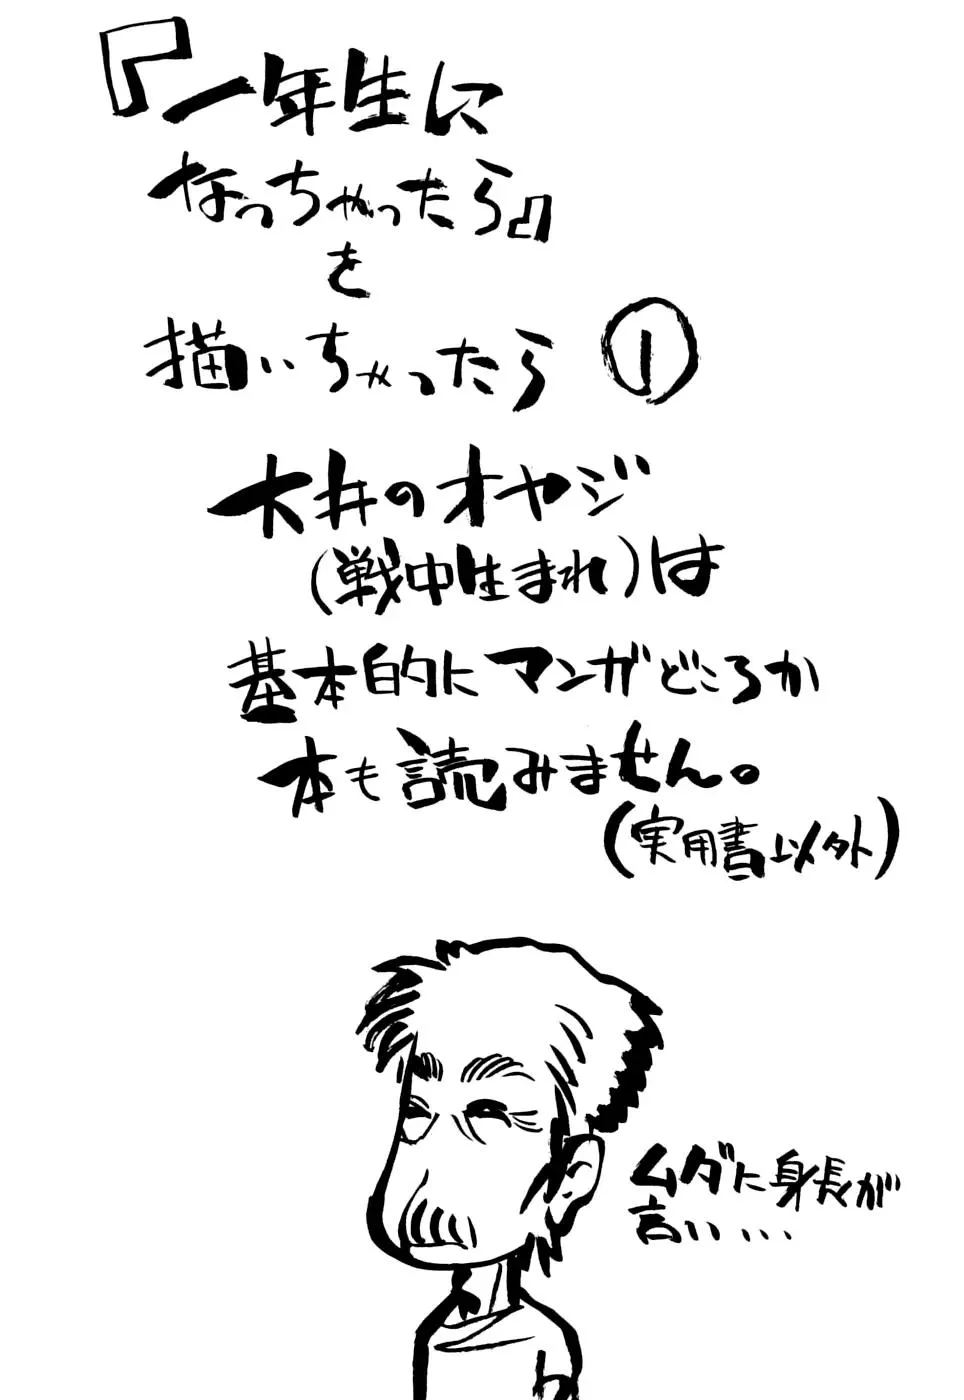 『一年生に
なっちゃったら』
を
描いちゃったら ①
大井のオヤジ
(戦中生まれ)は
基本的にマンガどころか
本も読みません。
(実用書以外)
ムダに身長が
高い...